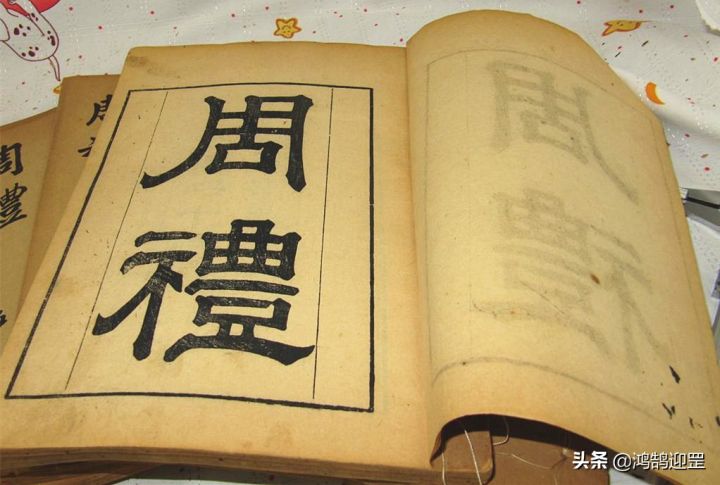 周
禮
周
周
禮
头条 @鸿鹄迎罡